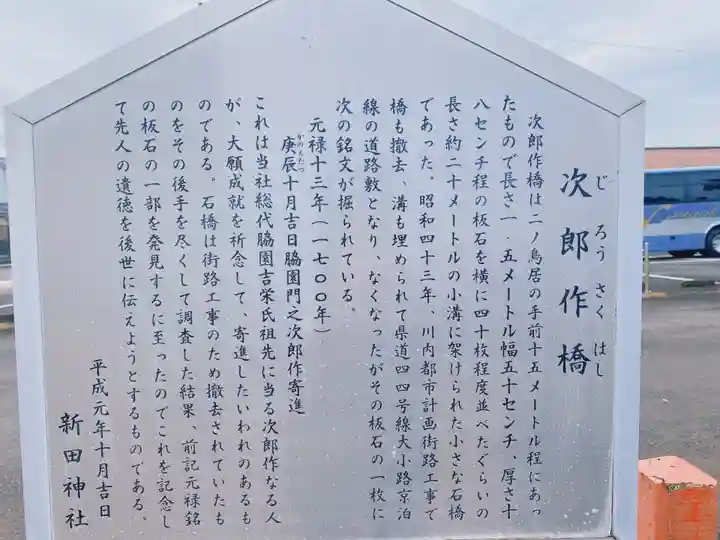 次郎作橋
じろうさくはし
次郎作橋は二ノ鳥居の手前十五メートル程にあっ
たもので長さ一・五メートル幅五十センチ、厚さ十
八センチ程の板石を横に四十枚程度並べたぐらいの
長さ約二十メートルの小溝に架けられた小さな石橋
であった。昭和四十三年、川内都市計画街路工事で
橋も撤去、溝も埋められて県道四四号線大小路京泊
線の道路敷となり、なくなったがその板石の一枚に
次の銘文が掘られている。
元禄十三年(一七〇〇年)
庚辰十月吉日脇園門之次郎作寄進
かのえたつ
これは当社総代脇園吉栄氏祖先に当る次郎作なる人
が、大願成就を祈念して、寄進したいわれのあるも
のである。石橋は街路工事のため撤去されていたも
のをその後手を尽くして調査した結果、前記元禄銘
の板石の一部を発見するに至ったのでこれを記念し
て先人の遺徳を後世に伝えようとするものである。
平成元年十月吉日
新田神社